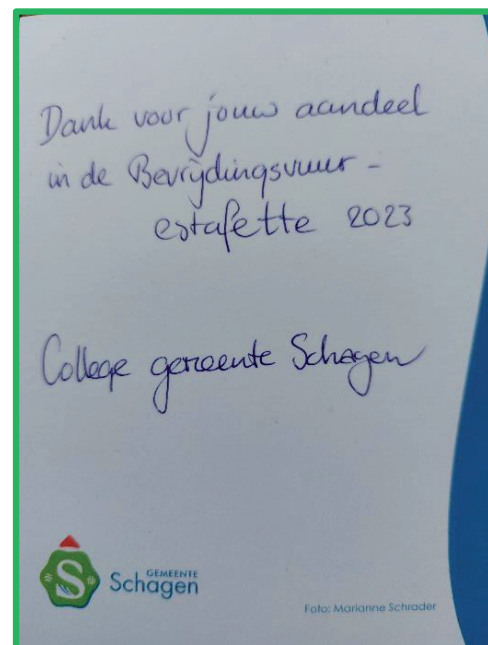 Dank voor jouw aandeel
in de Bevrijdingsvuur -
estafette 2023
College gemeente Schagen
S
GEMEENTE
Schagen
Foto: Marianne Schrader